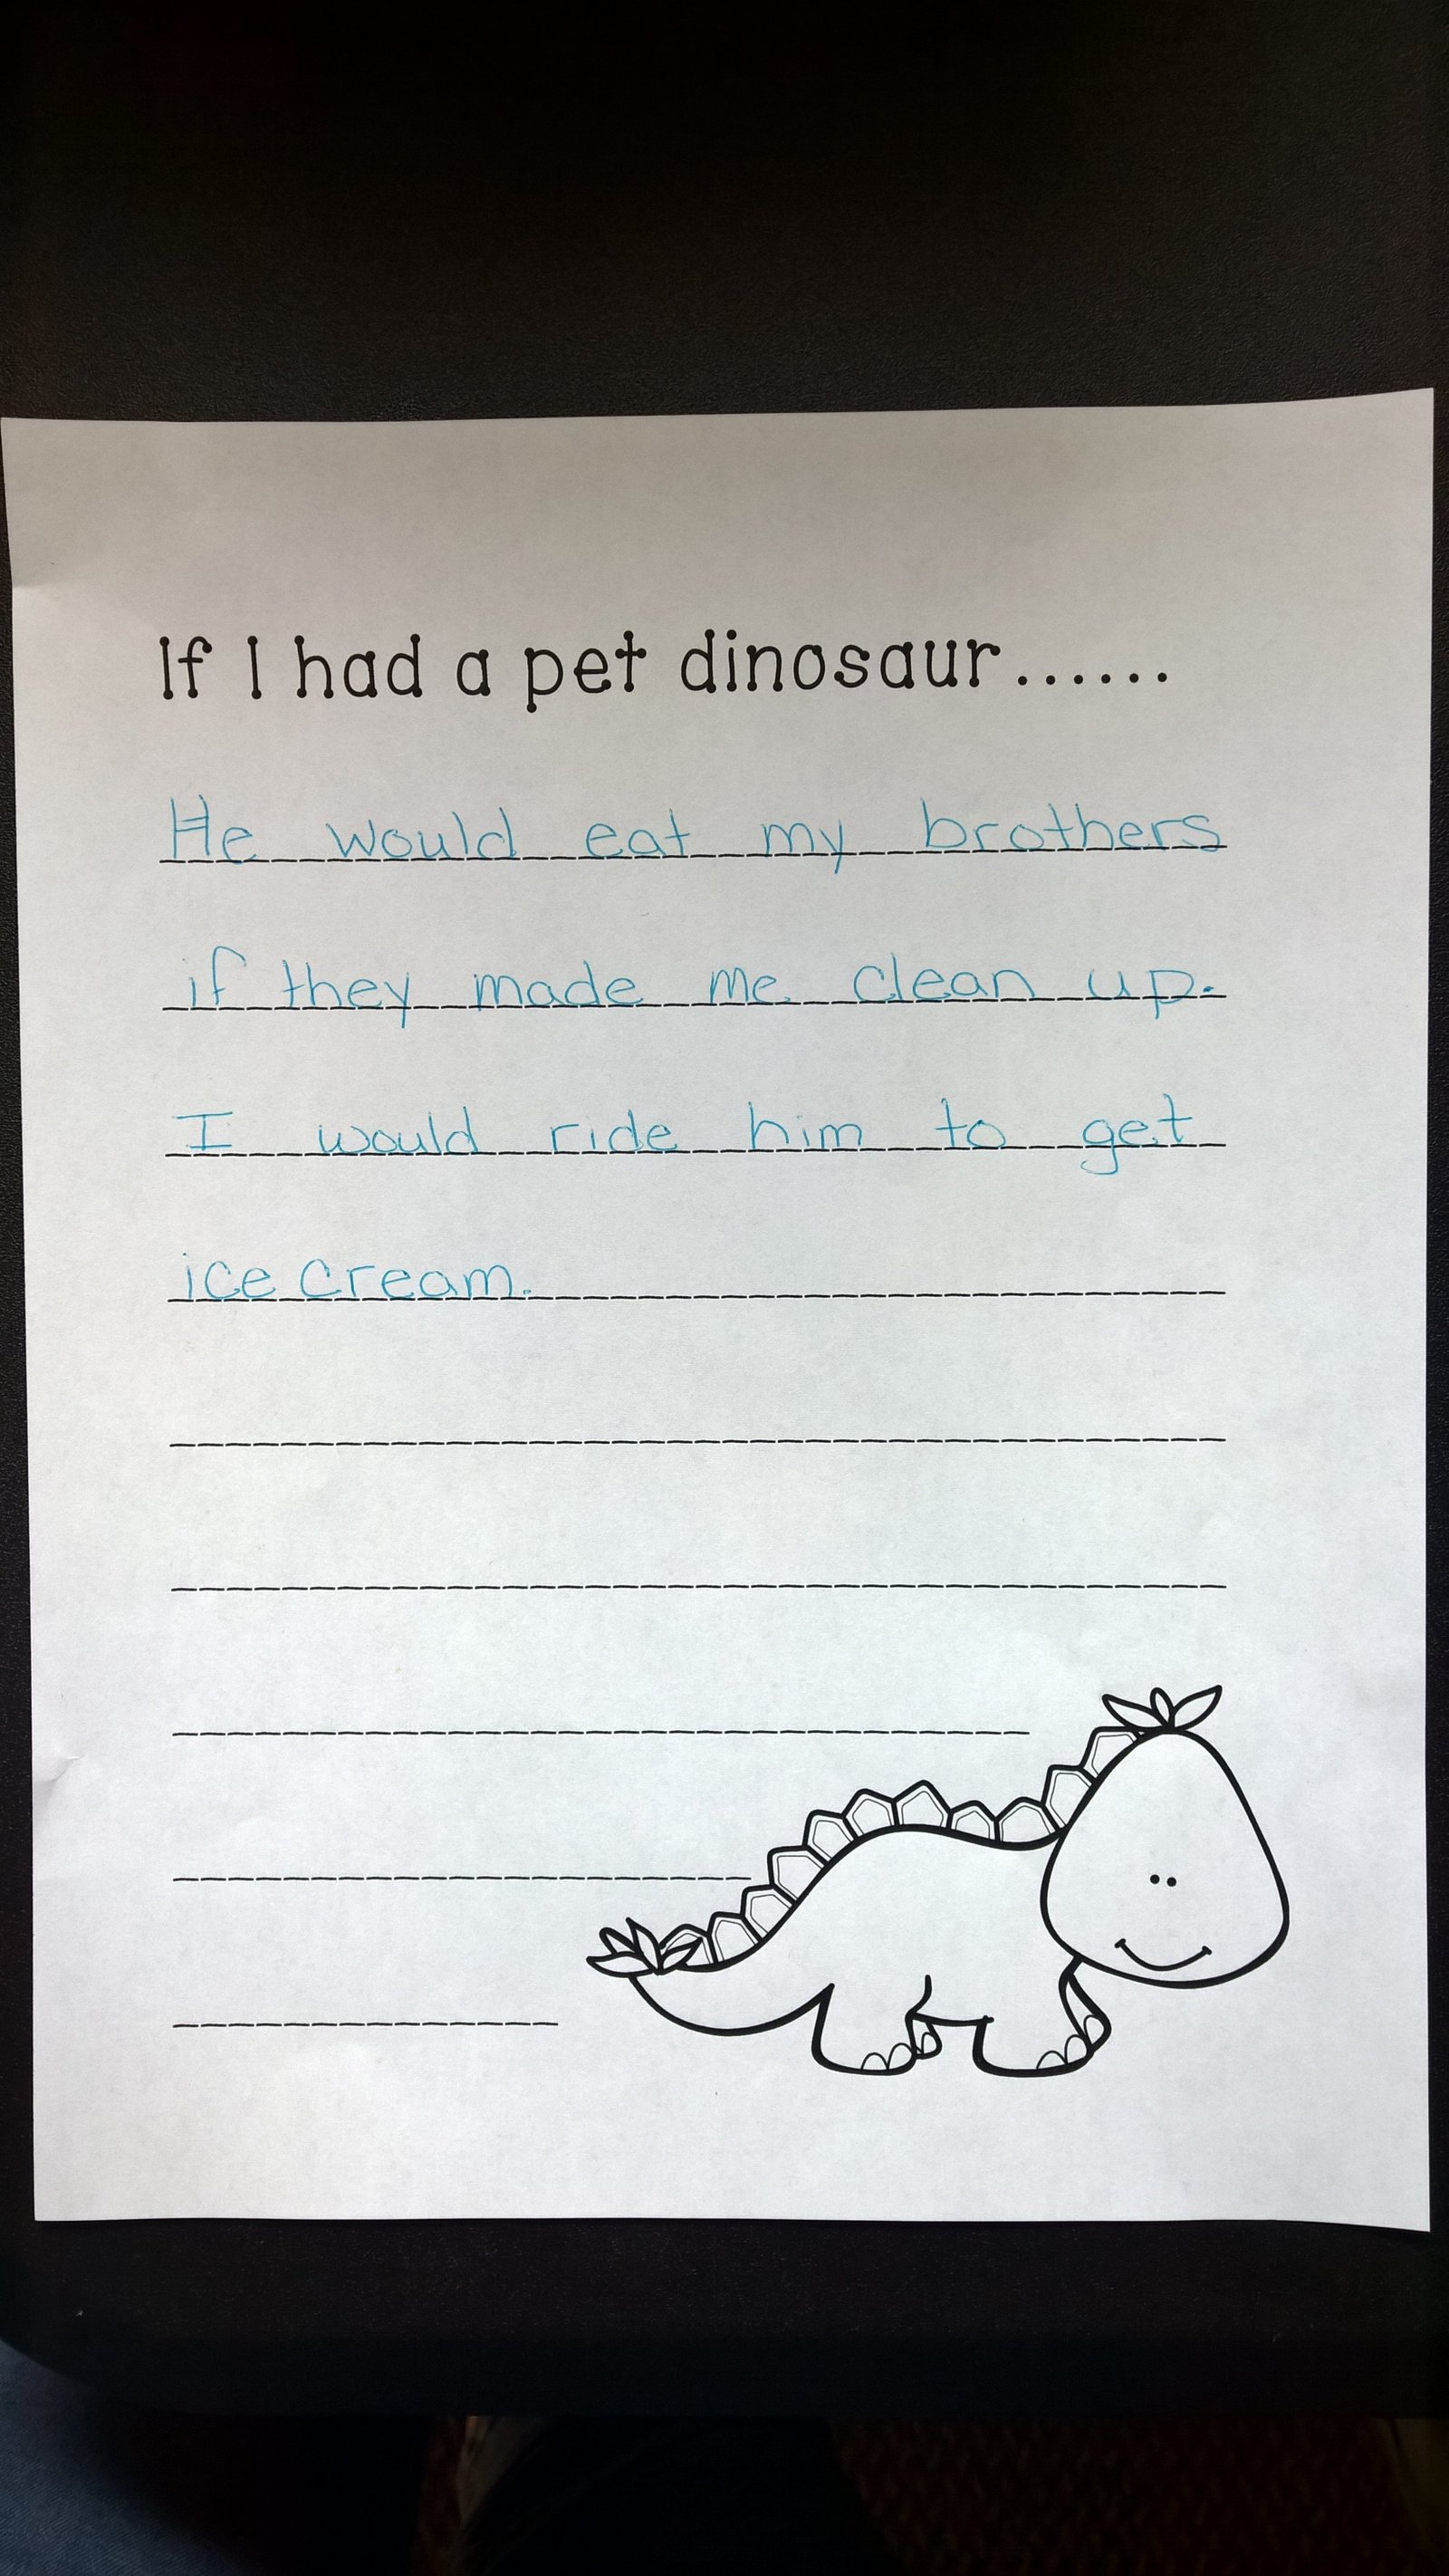 If I had a pet dinosaur......
He would eat my brothers
if they made me clean up.
I would ride him to get
ice cream.